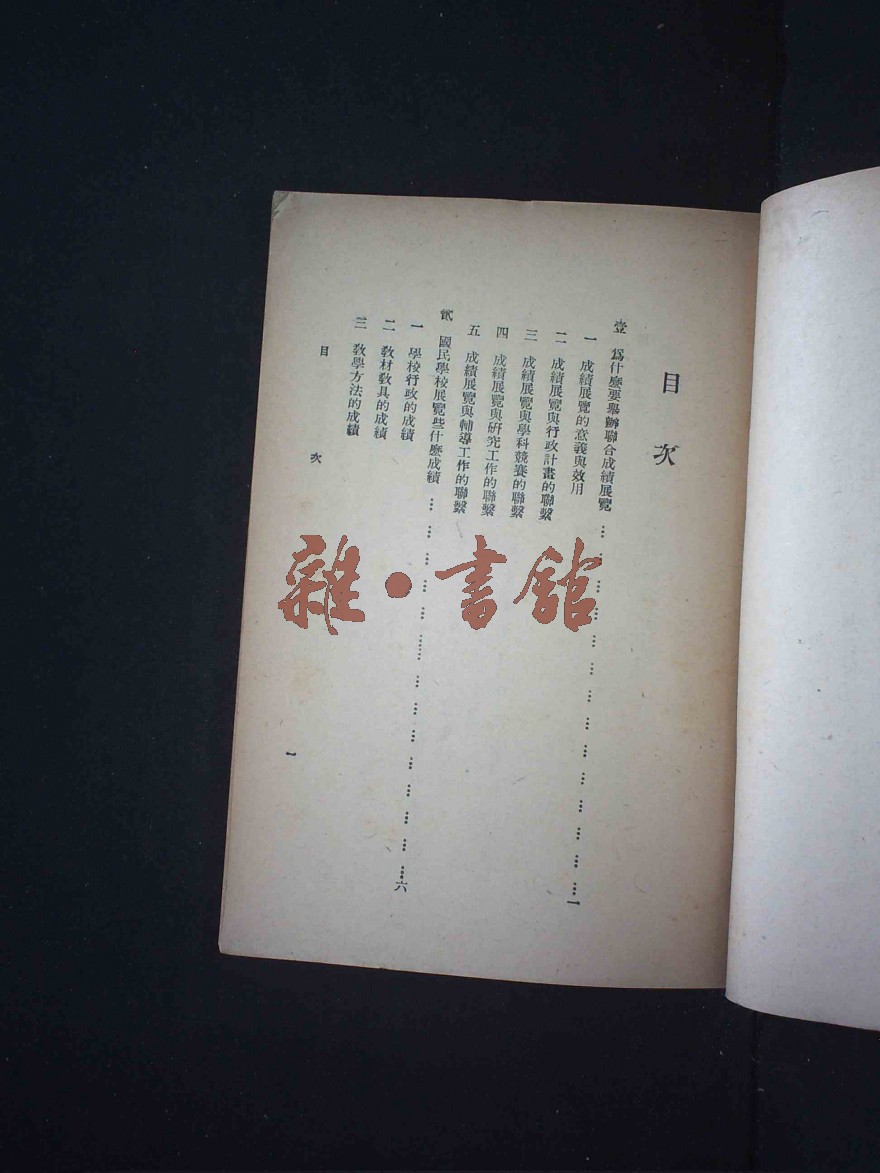 目次
壹 爲什麽要舉辦聯合成績展覽……………………………………一
一 成績展覽的意義與效用
二 成績展覽與行政計畫的聯繫
三 成績展覽與學科競賽的聯繫
四 成績展覽與研究工作的聯繫
五 成績展覽與輔導工作的聯繫
貳 國民學校展覽些什麽成績……………………………………六
一 學校行政的成績
二 教材教具的成績
三 教學方法的成績
目次 一
雜·書館